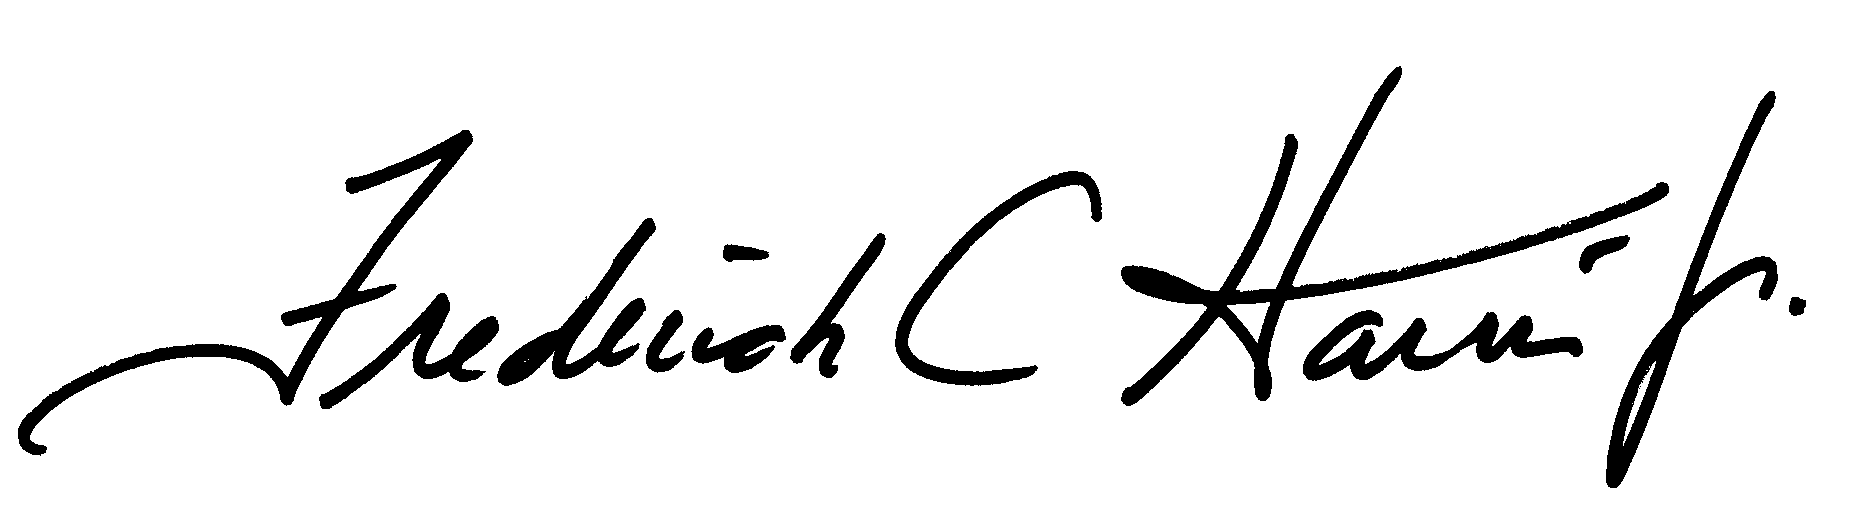 Frederick C Harris Jr.